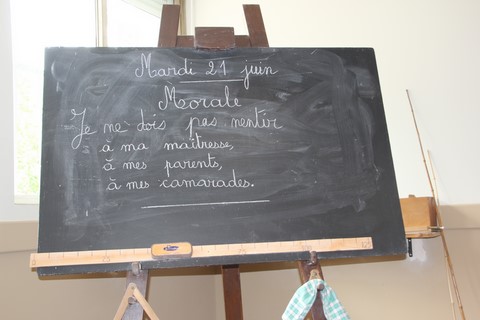 Mardi 21 juin
Morale
Je ne dois pas mentir
à ma maîtresse,
à mes parents,
à mes camarades.